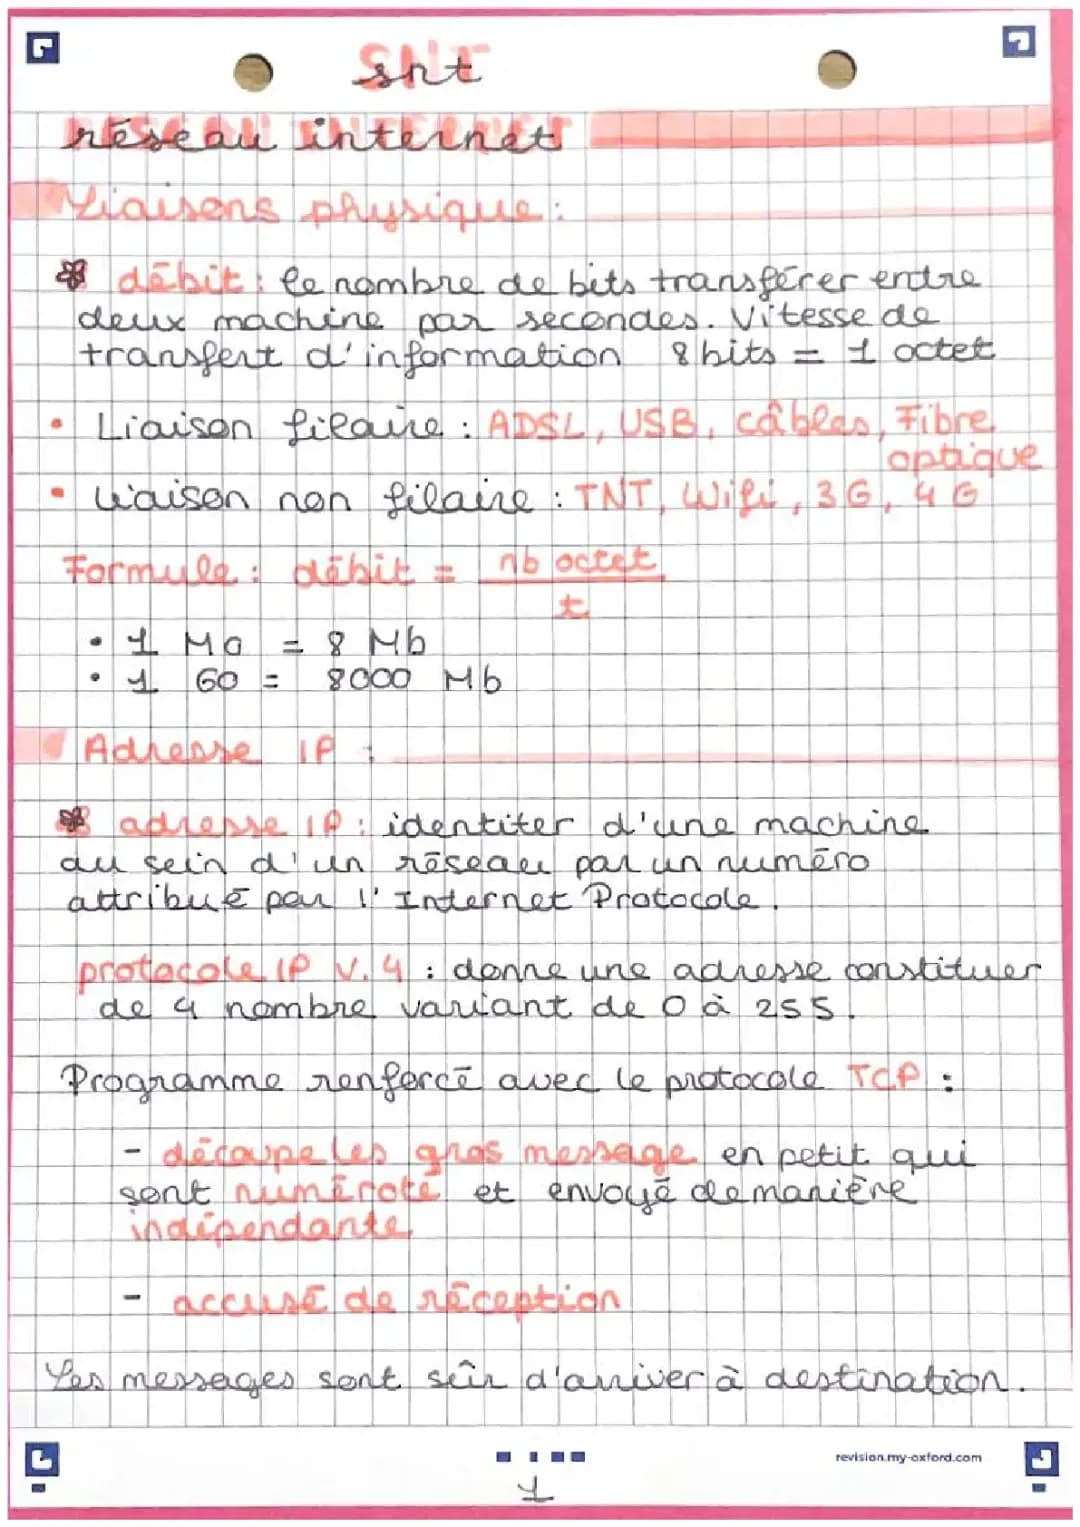 SNT
snt
réseau internet
Liaisons physique :
débit : le nombre de bits transférer entre
deux machine par secondes. Vitesse de
transfert d'information 8 bits = 1 octet
• Liaison filaire : ADSL, USB, câbles, Fibre
optique
• Liaison non filaire : TNT, Wifi, 3G, 4G
Formule : débit = nb octet
t
• 1 Mo = 8 Mb
• 1 Go = 8000 Mb
Adresse IP :
adresse IP : identiter d'une machine
au sein d'un réseau par un numéro
attribué par l'Internet Protocole.
protocole IP V.4 : donne une adresse constituer
de 4 nombre variant de 0 à 255.
Programme renforcé avec le protocole TCP :
- découpe les gros message en petit qui
sont numéroté et envoyé de manière
indépendante
- accusé de réception
Les messages sont sûr d'arriver à destination.
revision.my-oxford.com
1